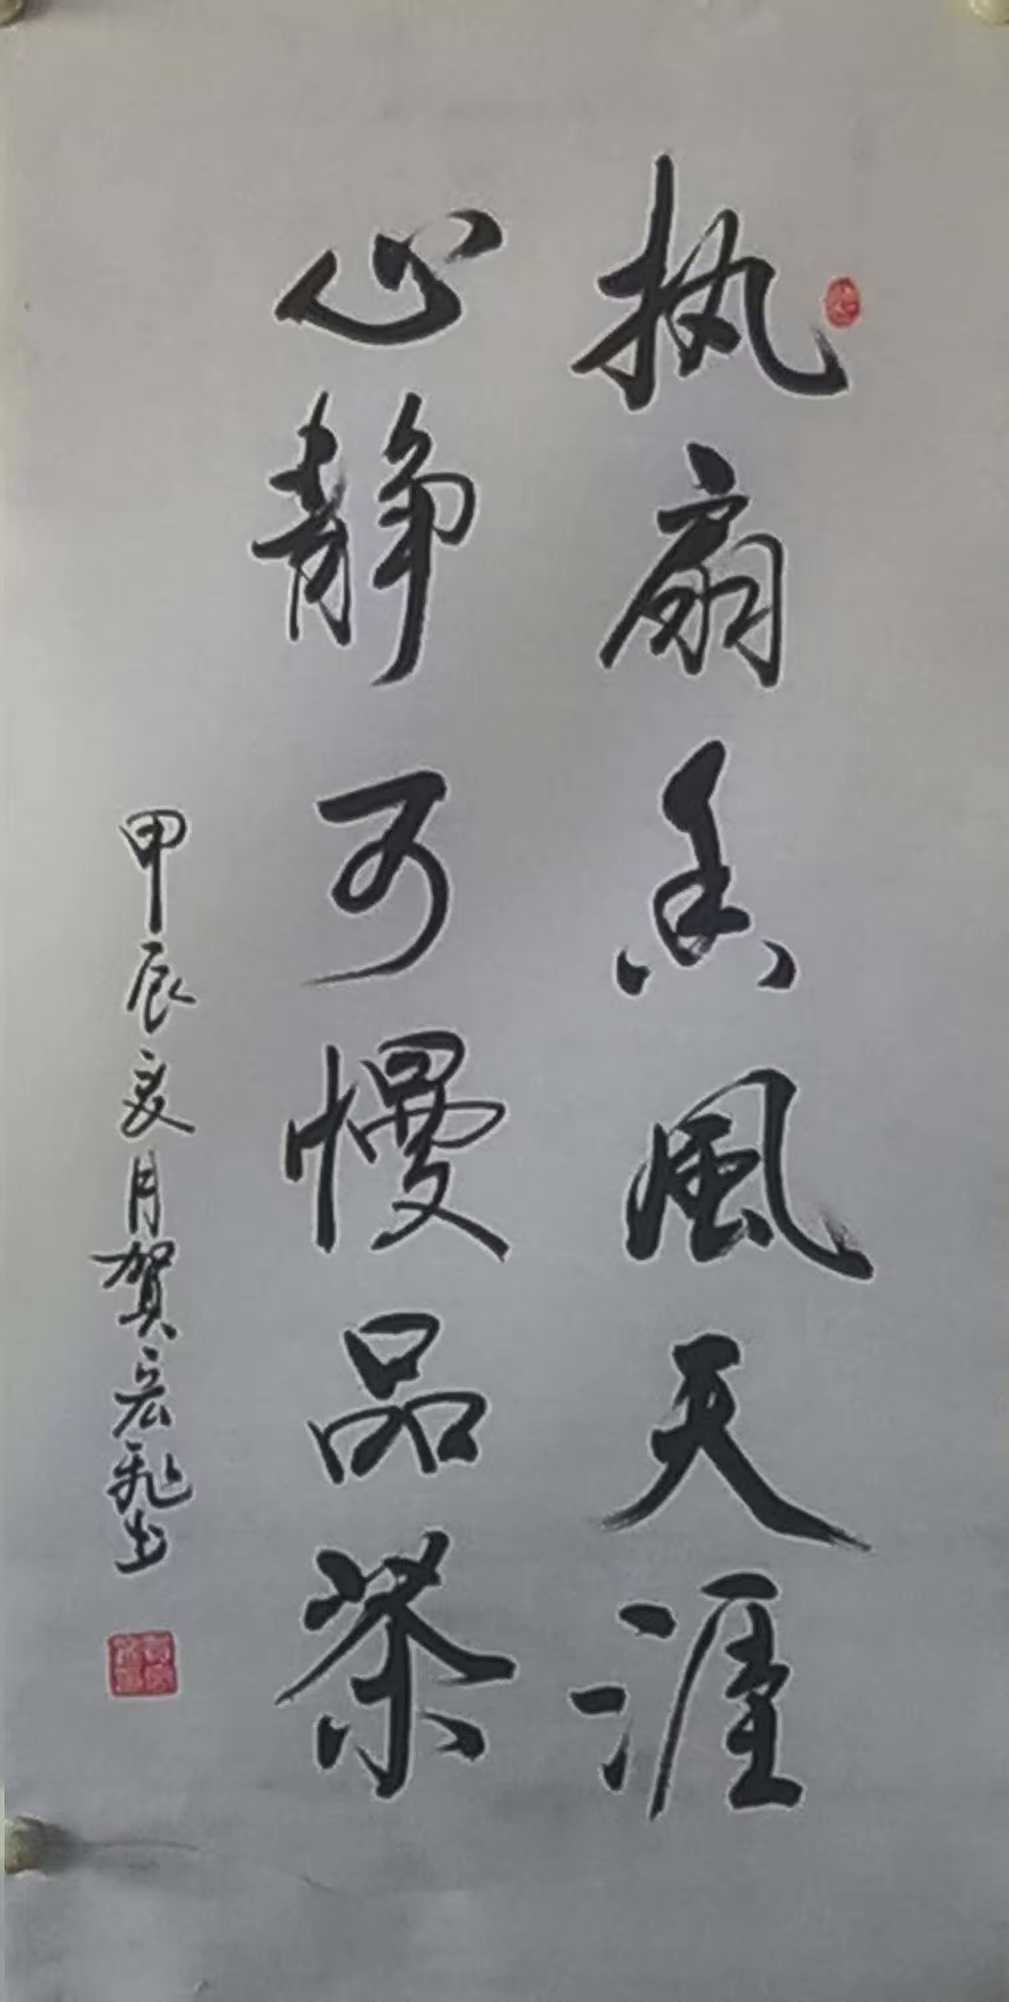 执扇風天涯
心静可慢品茶
甲辰夏月賀宏飛书